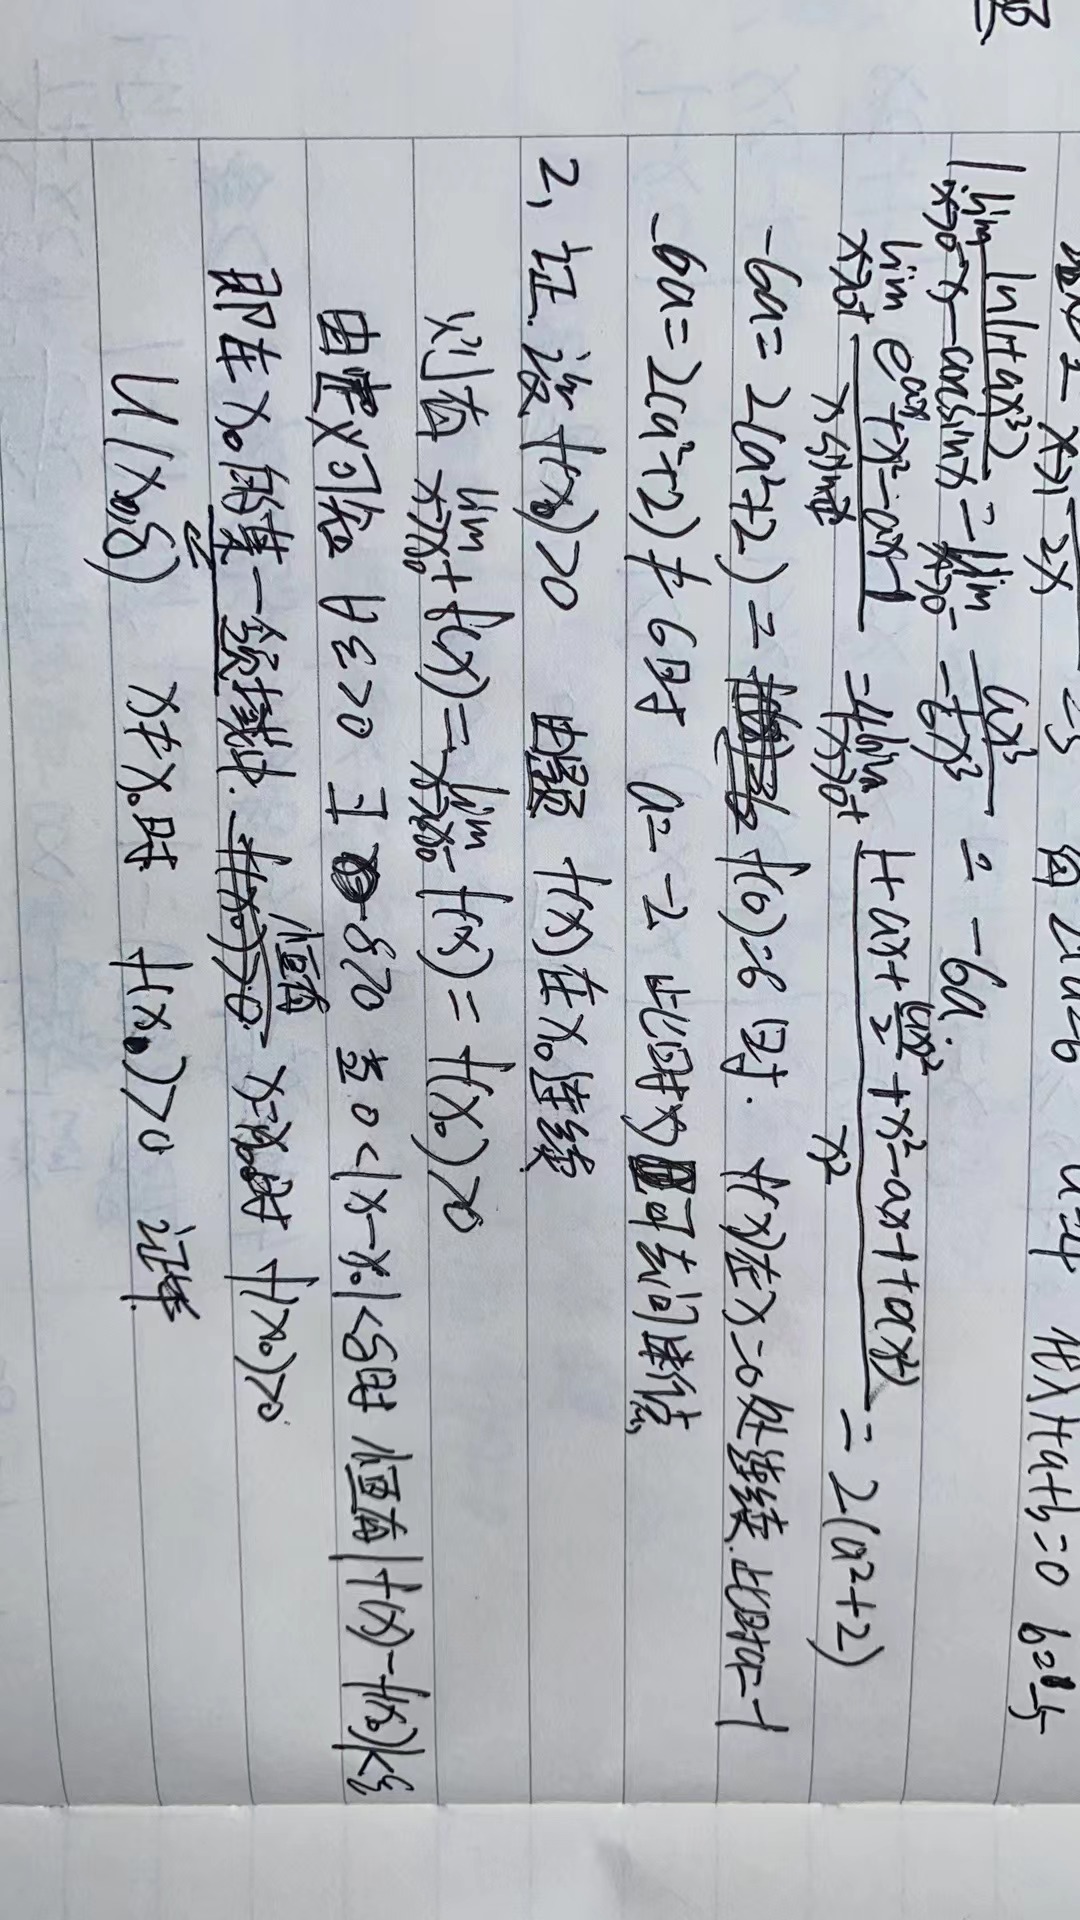 题
x→1 2x =3 得 2+a=6 a=4 代入1+a+b=0 b=-5
1 lim x→0⁻ ln(1+ax³) / x-arcsinx = lim x→0⁻ ax³ / -1/6x³ = -6a
lim x→0⁺ e^ax+x²-ax-1 / x sin x/4 = 4lim x→0⁺ 1+ax+(ax)²/2+x²-ax-1+o(x²) / x² = 2(a²+2)
-6a=2(a²+2)= f(0)=6 时. f(x)在x=0处连续.此时a=-1
-6a=2(a²+2)≠6时 a=-2 此时为可去间断点
2, 证.设f(x₀)>0 由题 f(x)在x₀连续
则有 lim x→x₀⁺ f(x)=lim x→x₀⁻ f(x)=f(x₀)>0
由定义可知 ∀ε>0 ∃ δ>0 当0<|x-x₀|<δ时 恒有|f(x)-f(x₀)|<ε
即在x₀的某一邻域. 恒有 x=x₀时 f(x₀)>0
U(x₀,δ) x≠x₀时 f(x₀)>0 证毕.